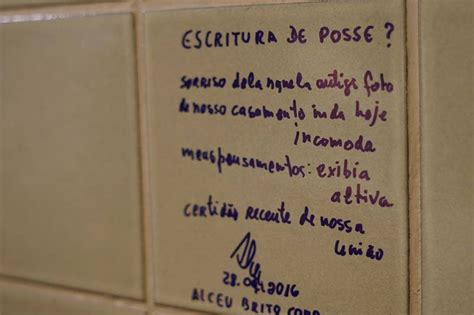 ESCRITURA DE POSSE?
sorriso dela naquela antiga foto
de nosso casamento inda hoje
incomoda
meus pensamentos: exibia
altiva
certidão recente de nossa
união
2016
ALCEU BRITO